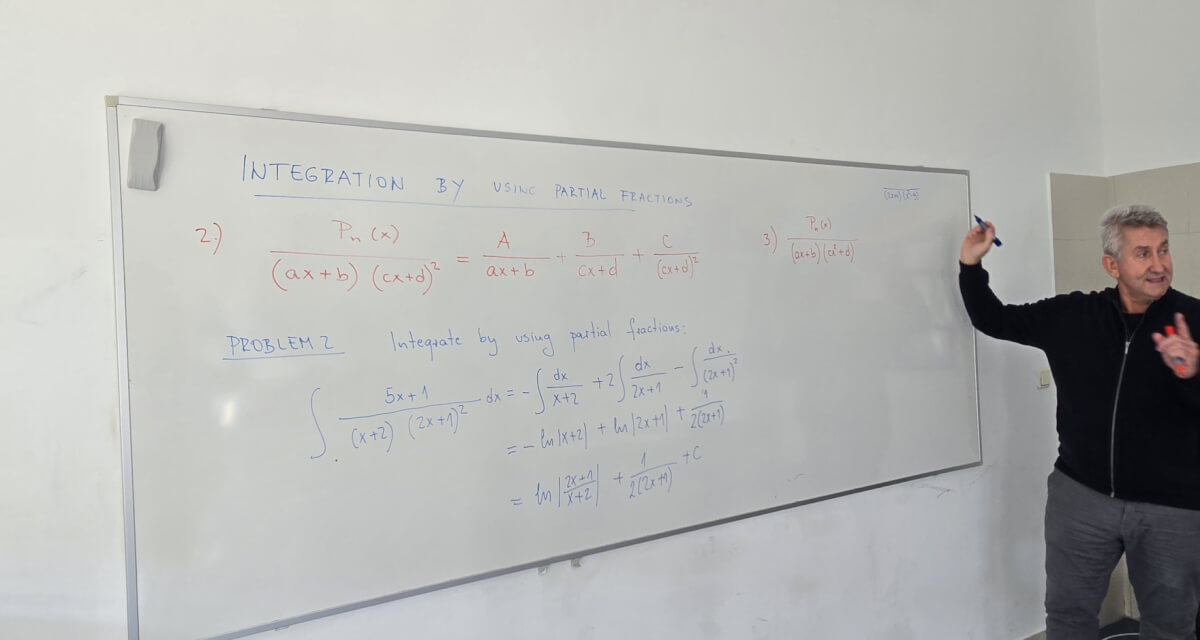 INTEGRATION BY USING PARTIAL FRACTIONS
2.) Pn(x) / (ax+b)(cx+d)² = A/(ax+b) + B/(cx+d) + C/(cx+d)²
3) Pn(x) / (ax+b)(cx²+d)
PROBLEM 2 Integrate by using partial fractions:
∫ (5x+1) / (x+2)(2x+1)² dx = -∫ dx/(x+2) + 2∫ dx/(2x+1) - ∫ dx/(2x+1)²
= - ln|x+2| + ln|2x+1| + 1/2(2x+1)
= ln|(2x+1)/(x+2)| + 1/2(2x+1) + C